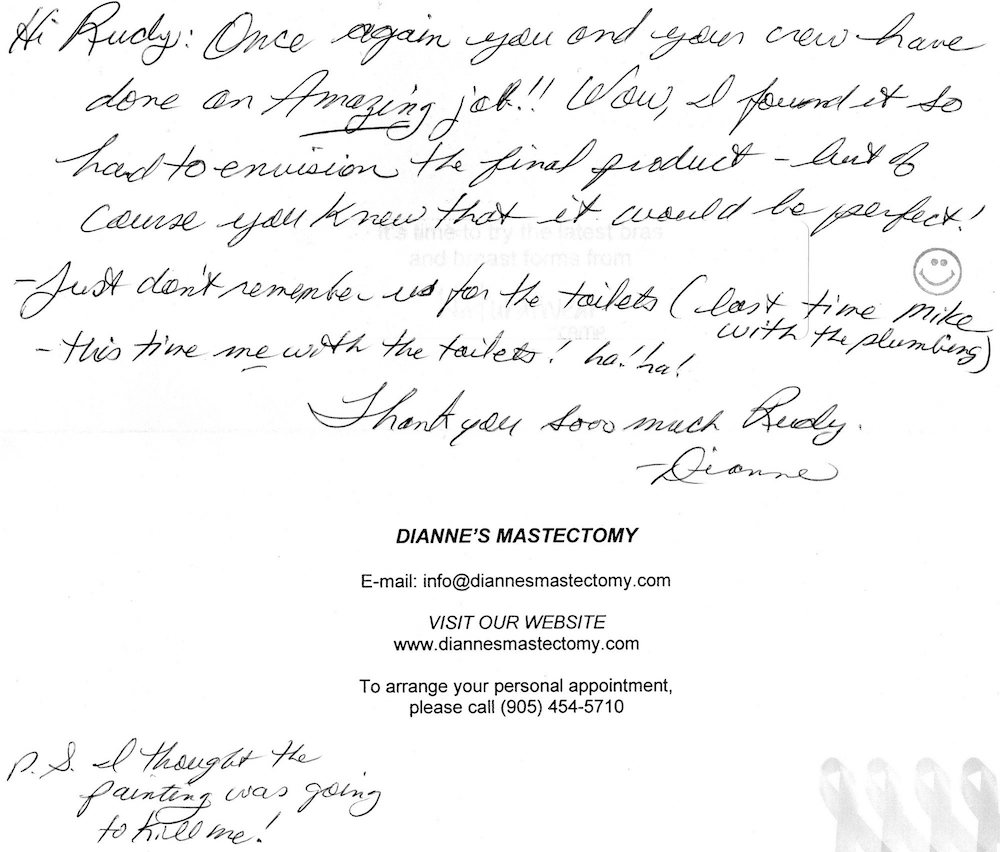 Hi Rudy: Once again you and your crew have
done an Amazing job!! Wow, I found it so
hard to envision the final product - but of
course you knew that it would be perfect!
It's time to try the latest bras
and breast forms from
- Just don't remember us for the toilets (last time mike
with the plumbing)
- this time me with the toilets! ha! ha!
Thank you sooo much Rudy.
- Dianne
DIANNE'S MASTECTOMY
E-mail: info@diannesmastectomy.com
VISIT OUR WEBSITE
www.diannesmastectomy.com
To arrange your personal appointment,
please call (905) 454-5710
P.S. I thought the
painting was going
to kill me!